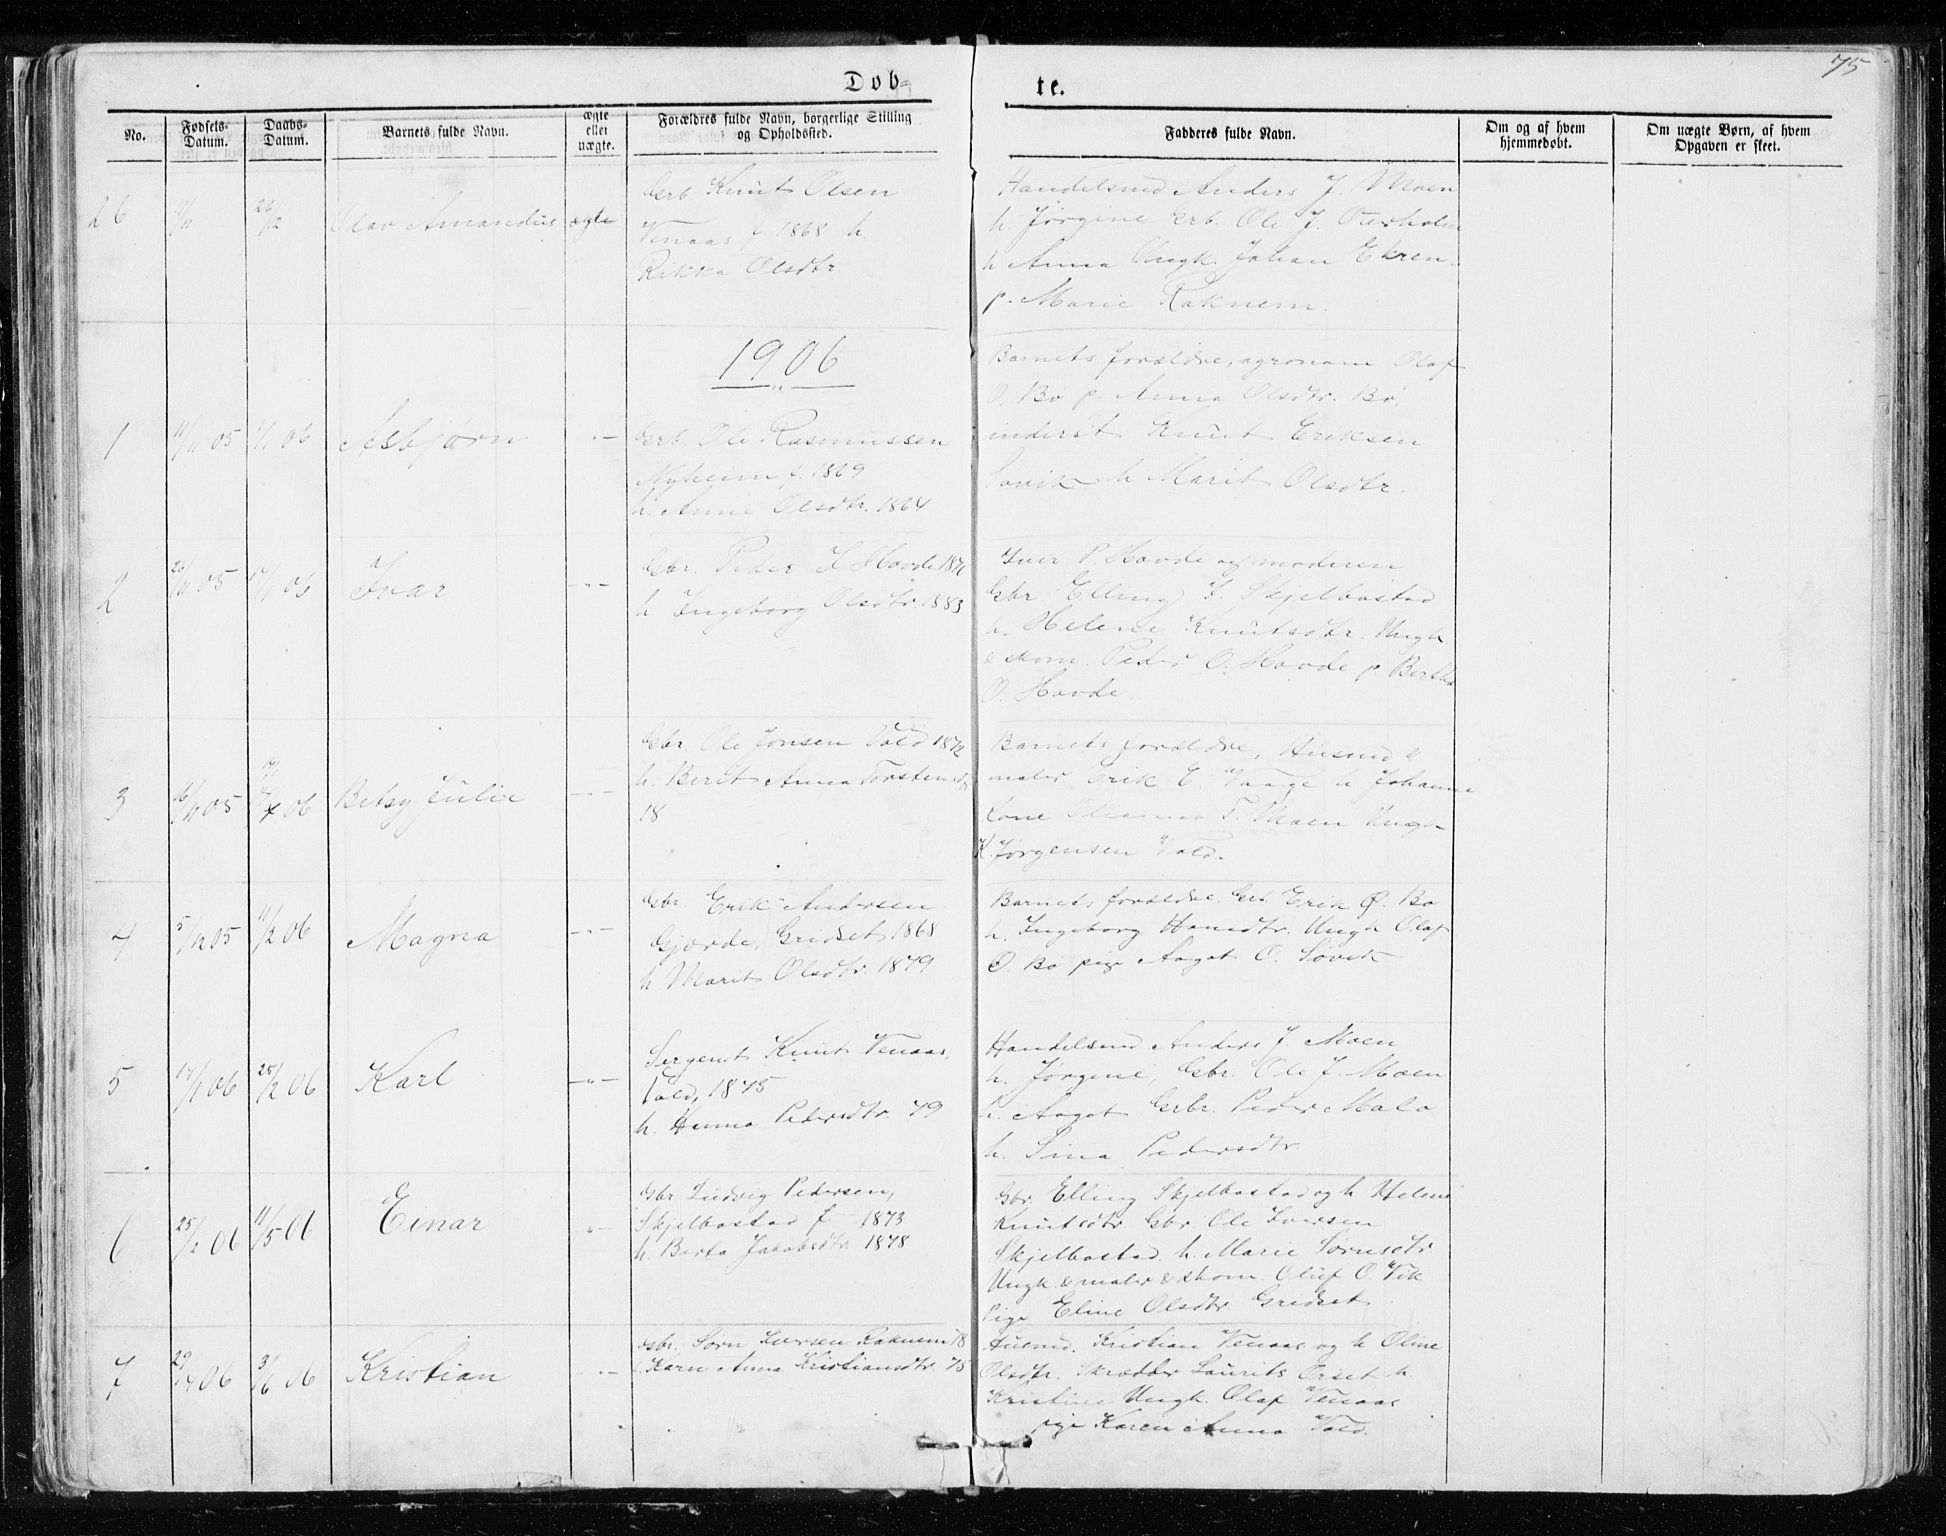 75
Døb=
te.
No.
Fødsels-
Datum.
Daabs-
Datum.
Barnets fulde Navn.
ægte
eller
uægte.
Forældres fulde Navn, borgerlige Stilling
og Opholdssted.
Fadderes fulde Navn.
Om og af hvem
hjemmedøbt.
Om uægte Børn, af hvem
Opgaven er skeet.
26
Olav Amandus
ægte
Knut Olsen
Venaas f. 1868 h
Rikka Olsdtr.
Anders J. Moen
h. Jørgine Ole J.
h Anna Ungk. Johan Ekren
p. Marie Raknem.
1906
1
05
06
Asbjørn
Ole Rasmussen
Nyheim f. 1869
h. Anne Olsdtr. 1864
Barnets forældre, agronom Olaf
O. Bø p. Anna Olsdtr. Bø,
inderst Knut Eriksen
h Marit Olsdtr.
2
05
06
Ivar
Gbr. Peder Hovde
h Ingeborg Olsdtr. 1883
Iver P. Hovde og moderen
Gbr Elling I. Skjelbostad
h. Helene Knutsdtr. Ungk
& skom. Peder O. Hovde p Bertha
O. Hovde
3
16/11 05
06
Betsy Julie
Gbr. Ole Jonsen Vold 1872
h. Berit Anna Torstensdtr
18
Barnets forældre, Husmd &
maler Erik E Vaage h Johanne
Kone T. Moen Ungk
K. Jørgensen Vold.
4
5/12 05
11/2 06
Magna
Gbr. Erik Andersen
Gjærde, Gridset 1868
h Marit Olsdtr. 1879
Barnets forældre, Gbr Erik O. Bø
h. Ingeborg Hansdtr. Ungk Olaf
O. Bø pige Aagot O. Søvik
5
17/1 06
25/2 06
Karl
Sergent Knut Venaas,
Vold, 1875
h. Hanna Pedersdtr. 79
Handelsmd Anders J. Moen
h. Jørgine, Gbr. Ole J. Moen
h. Aagot Gbr. Peder Malo
h. Sina Pedersdtr.
6
25/2 06
11/5 06
Einar
Gbr Ludvig Pedersen,
Skjelbostad f 1873
h. Berta Jakobsdtr. 1878
Gbr. Elling Skjelbostad og h Helene
Knutsdtr. Gbr. Ole Iversen
Skjelbostad h. Marie Sørnsdtr
Ungk & maler & skom. Oluf O. Vik
Pige Eline Olsdtr Gridset
7
29/4 06
3/6 06
Kristian
Gbr. Sørn Iversen Raknem 78
Karn Anna Kristiansdtr. 75
Husmd. Kristian Venaas og h Oline
Olsdtr. Skrædder Laurits Orset h.
Kristine Ungk. Olaf Venaas
pige Karen Anna Vold.